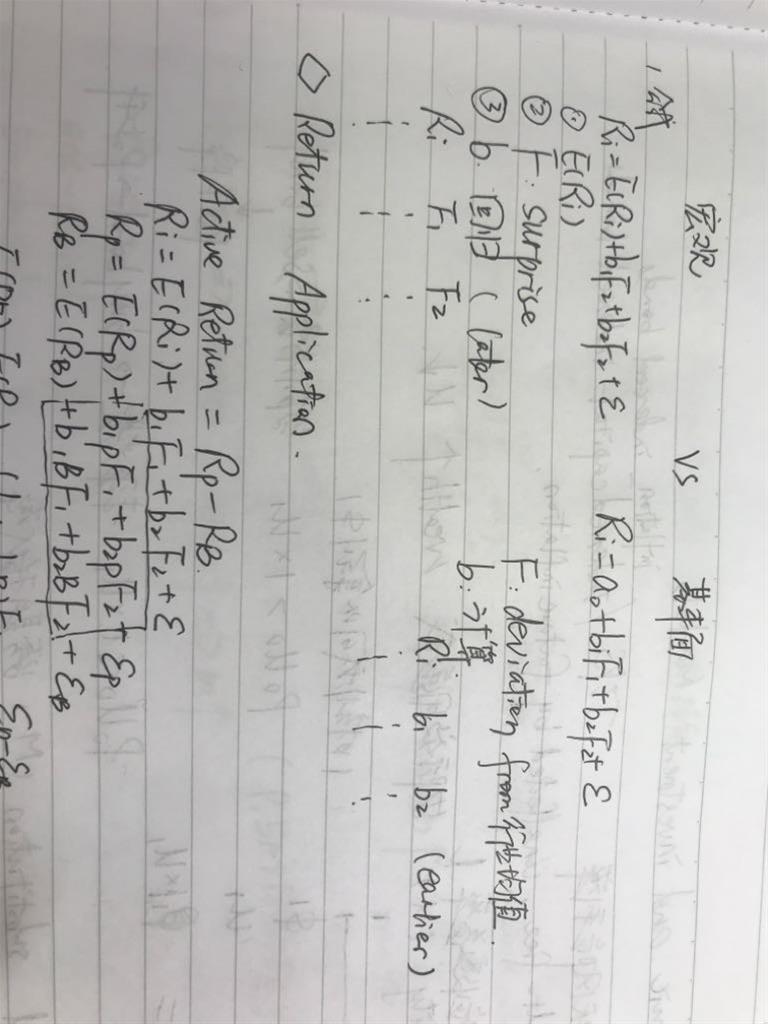 宏观 VS 基本面
1、公式
Ri = E(Ri) + b1F2 + b2F2 + ε Ri = a0 + b1F1 + b2F2 + ε
① E(Ri)
② F: surprise F: deviation from 行业均值
③ b 回归 (later) b: 计算
Ri F1 F2 Ri b1 b2 (earlier)
◇ Return Application.
Active Return = Rp − RB.
Ri = E(Ri) + b1F1 + b2F2 + ε
Rp = E(Rp) + b1pF1 + b2pF2 + εp
RB = E(RB) + b1BF1 + b2BF2 + εB
εp − εB